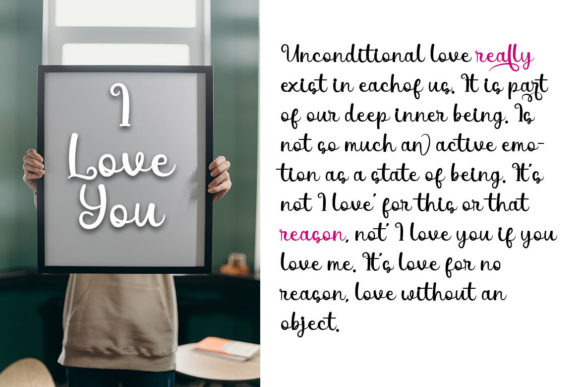 I
Love
You
Unconditional love really
exist in eachof us. It is part
of our deep inner being. Is
not so much an) active emo-
tion as a state of being. It's
not I love' for this or that
reason, not' I love you if you
love me. It's love for no
reason, love without an
object.